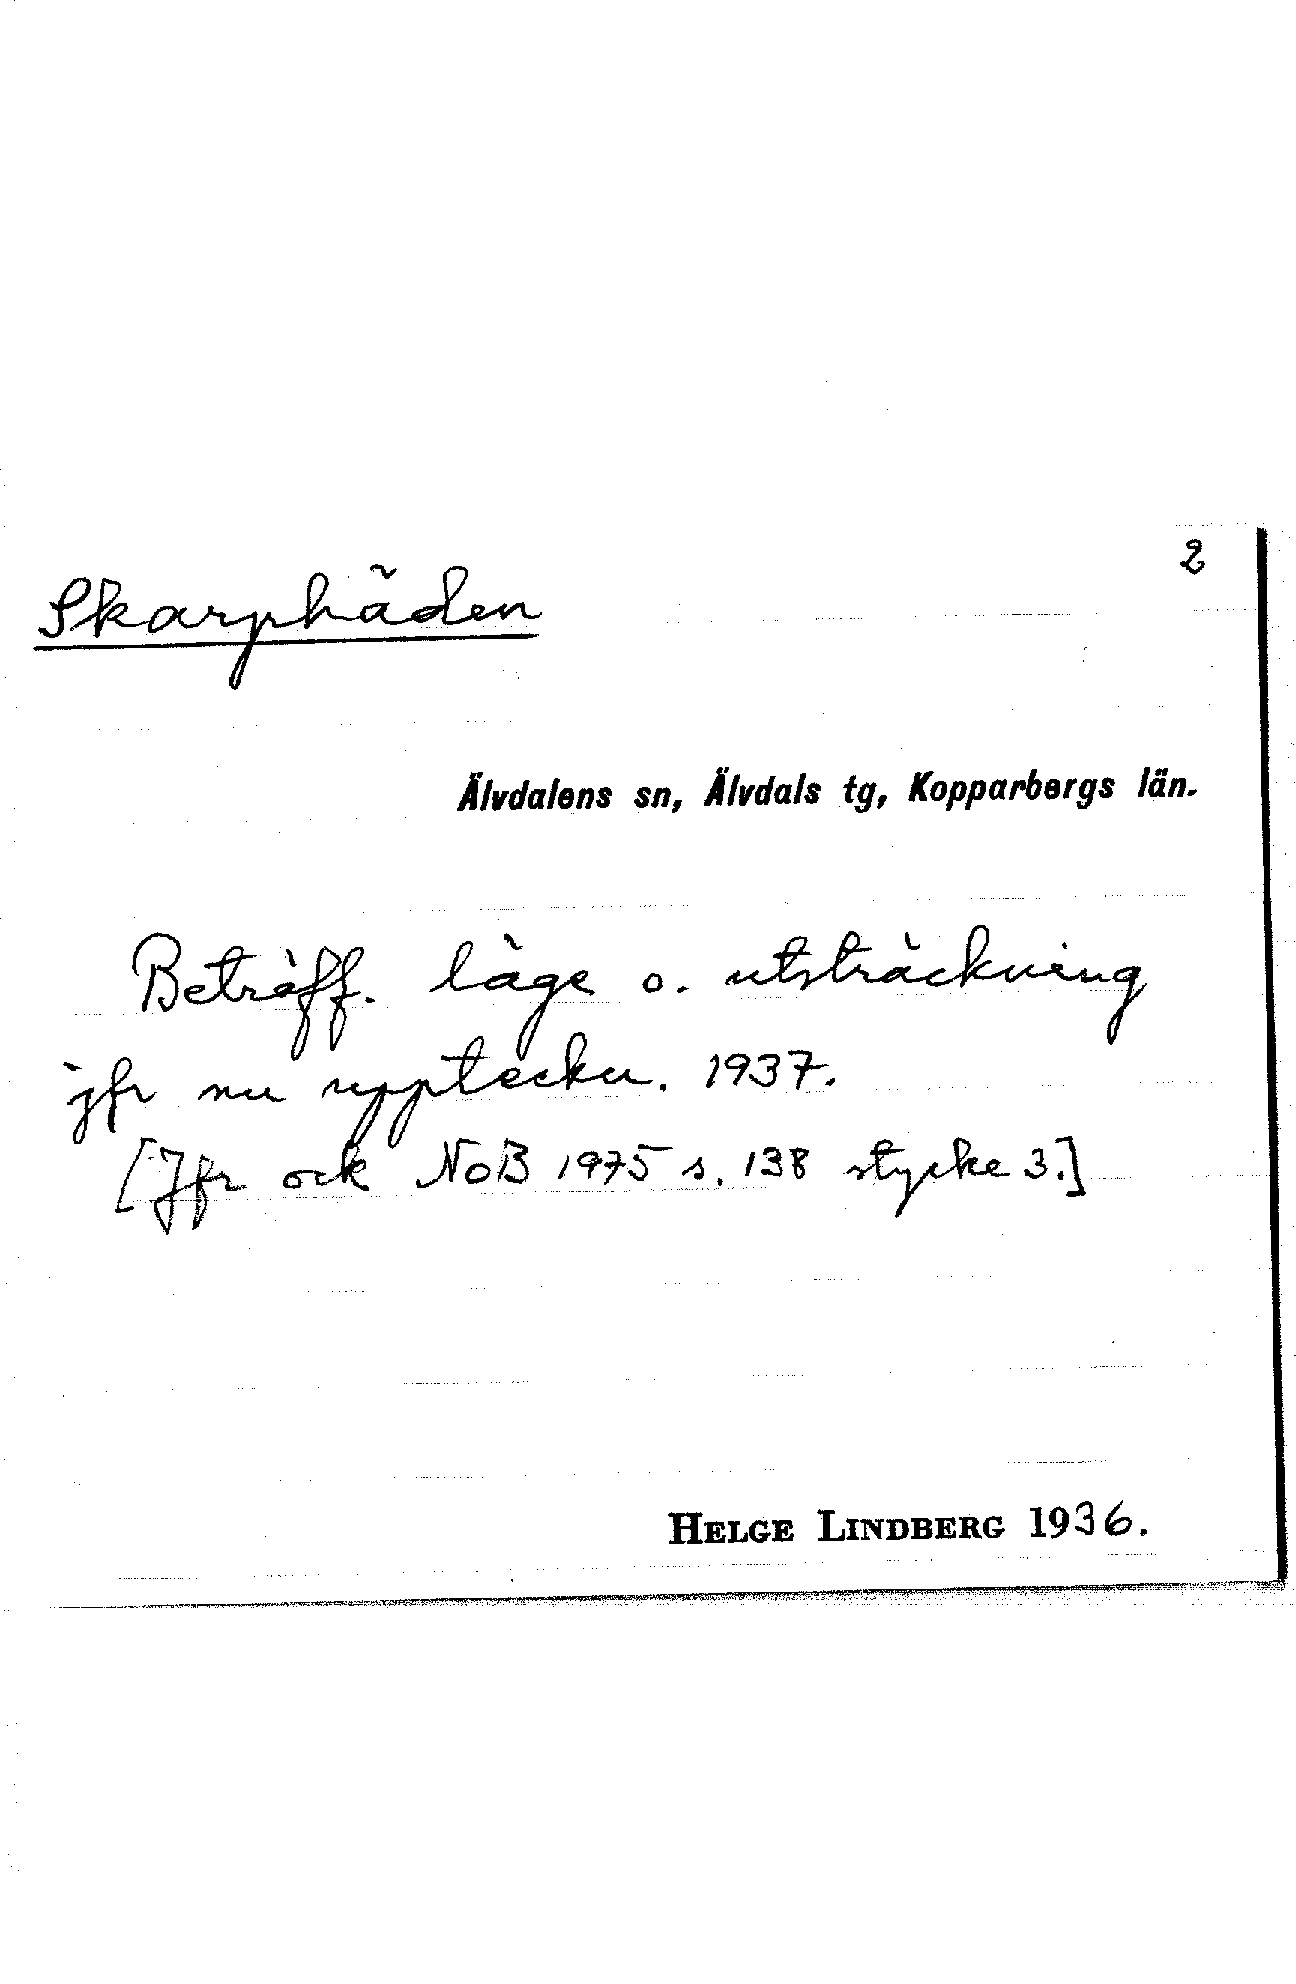 2
Skarphäden
Älvdalens sn, Älvdals tg, Kopparbergs län.
Beträff. läge o. utsträckning
jfr nu uppteckn. 1937.
[Jfr ock NoB 1975 s. 138 stycke 3.]
HELGE LINDBERG 1936.